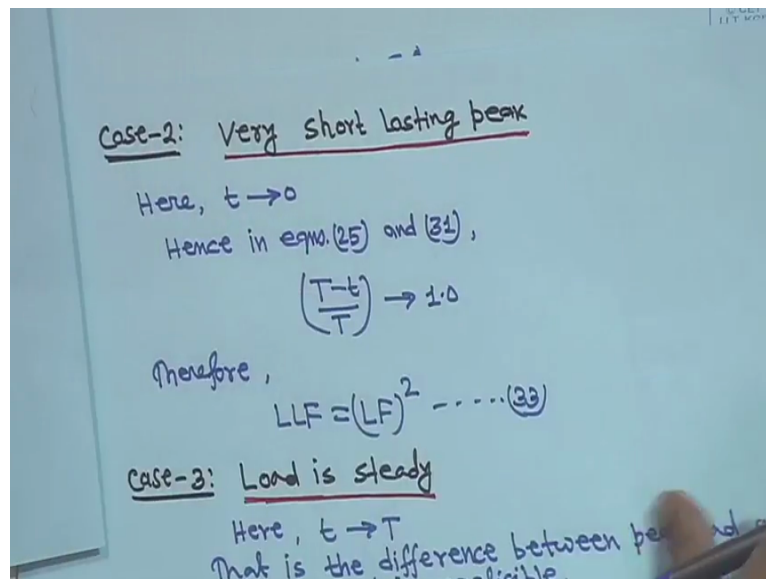 Case-2: Very short lasting peak
Here, t → 0
Hence in eqns. (25) and (31),
(T-t / T) → 1.0
Therefore,
LLF = (LF)² -----(33)
Case-3: Load is steady
Here, t → T
That is the difference between